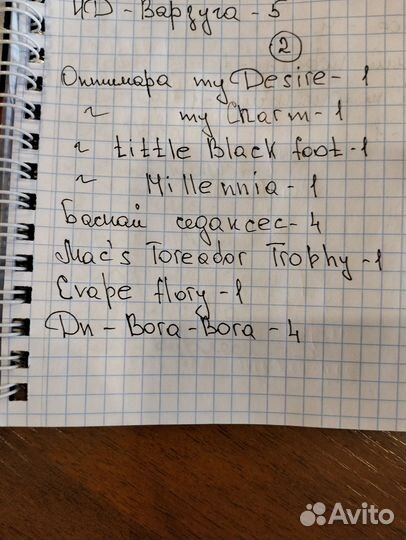 ИД - Варзуга - 5
2
Оптимара my Desire - 1
~ my Charm - 1
~ Little Black foot - 1
~ Millennia - 1
Баснай седаксес - 4
Mac's Toreador Trophy - 1
Evape flory - 1
Dn - Bora - Bora - 4
Avito